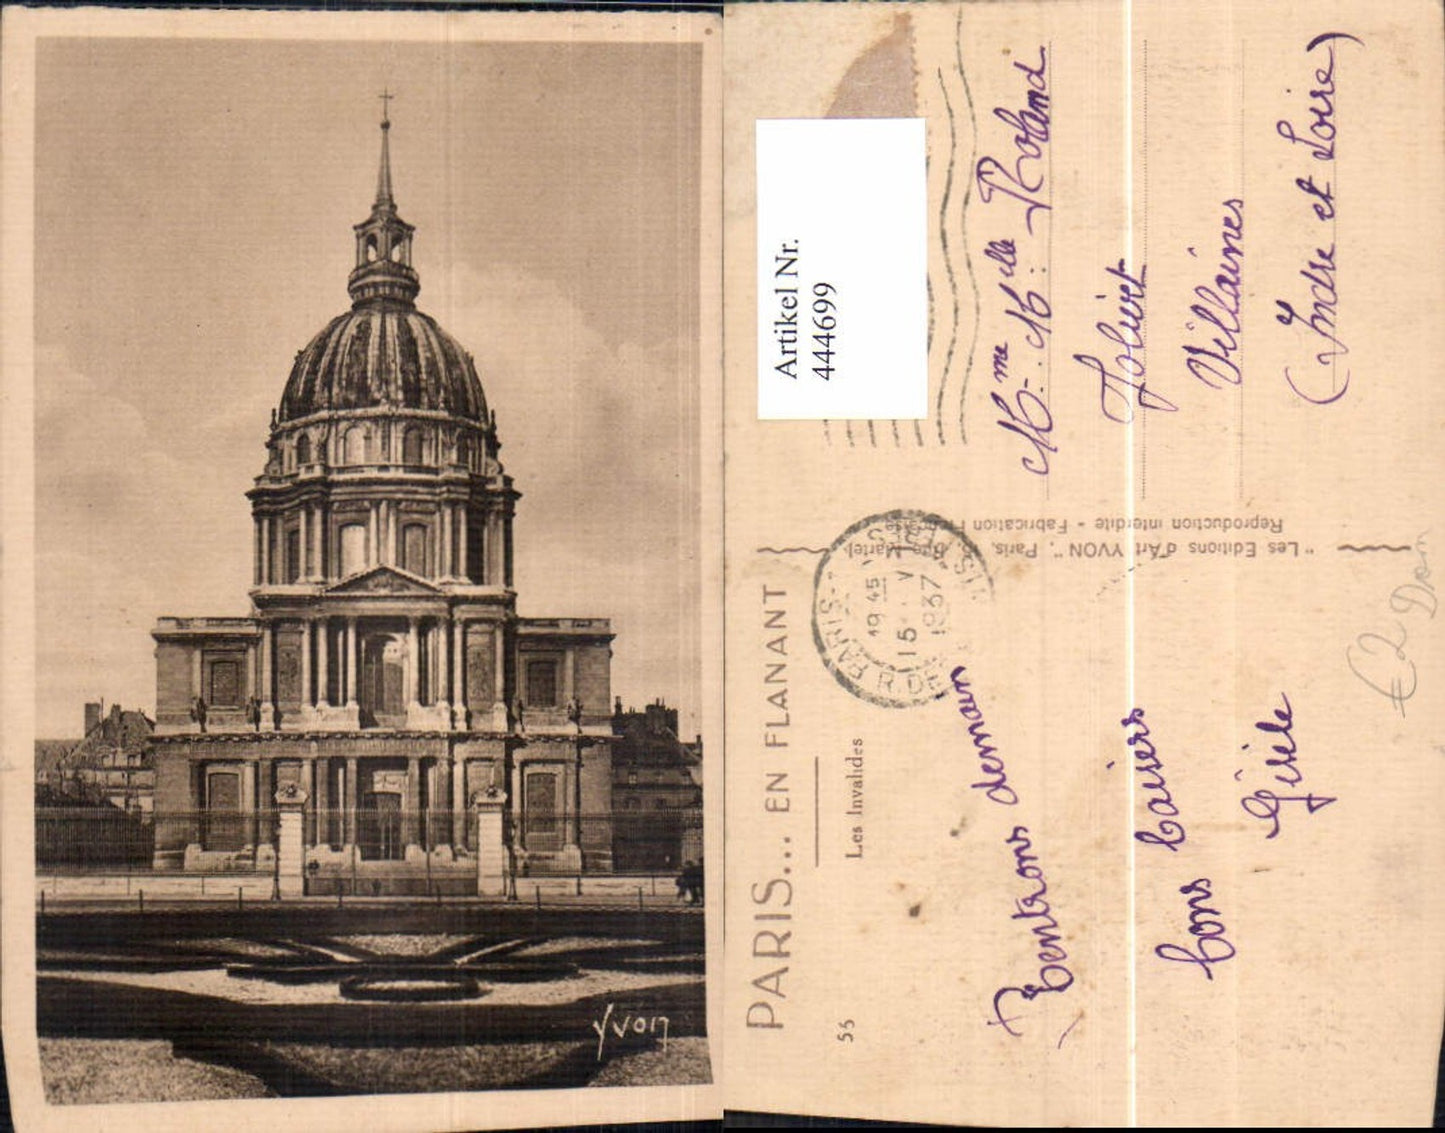 Yvon
PARIS... EN FLANANT
55
Les Invalides
Artikel Nr.
444699
PARIS
19 45
15 V
1937
"Les Editions d'Art YVON". Paris.
Reproduction interdite - Fabrication
Rentrons demain
bons baisers
Gisèle
Mme. Melle: Roland
Jolivet
Villaines
(Indre et Loire)
€2 Dom